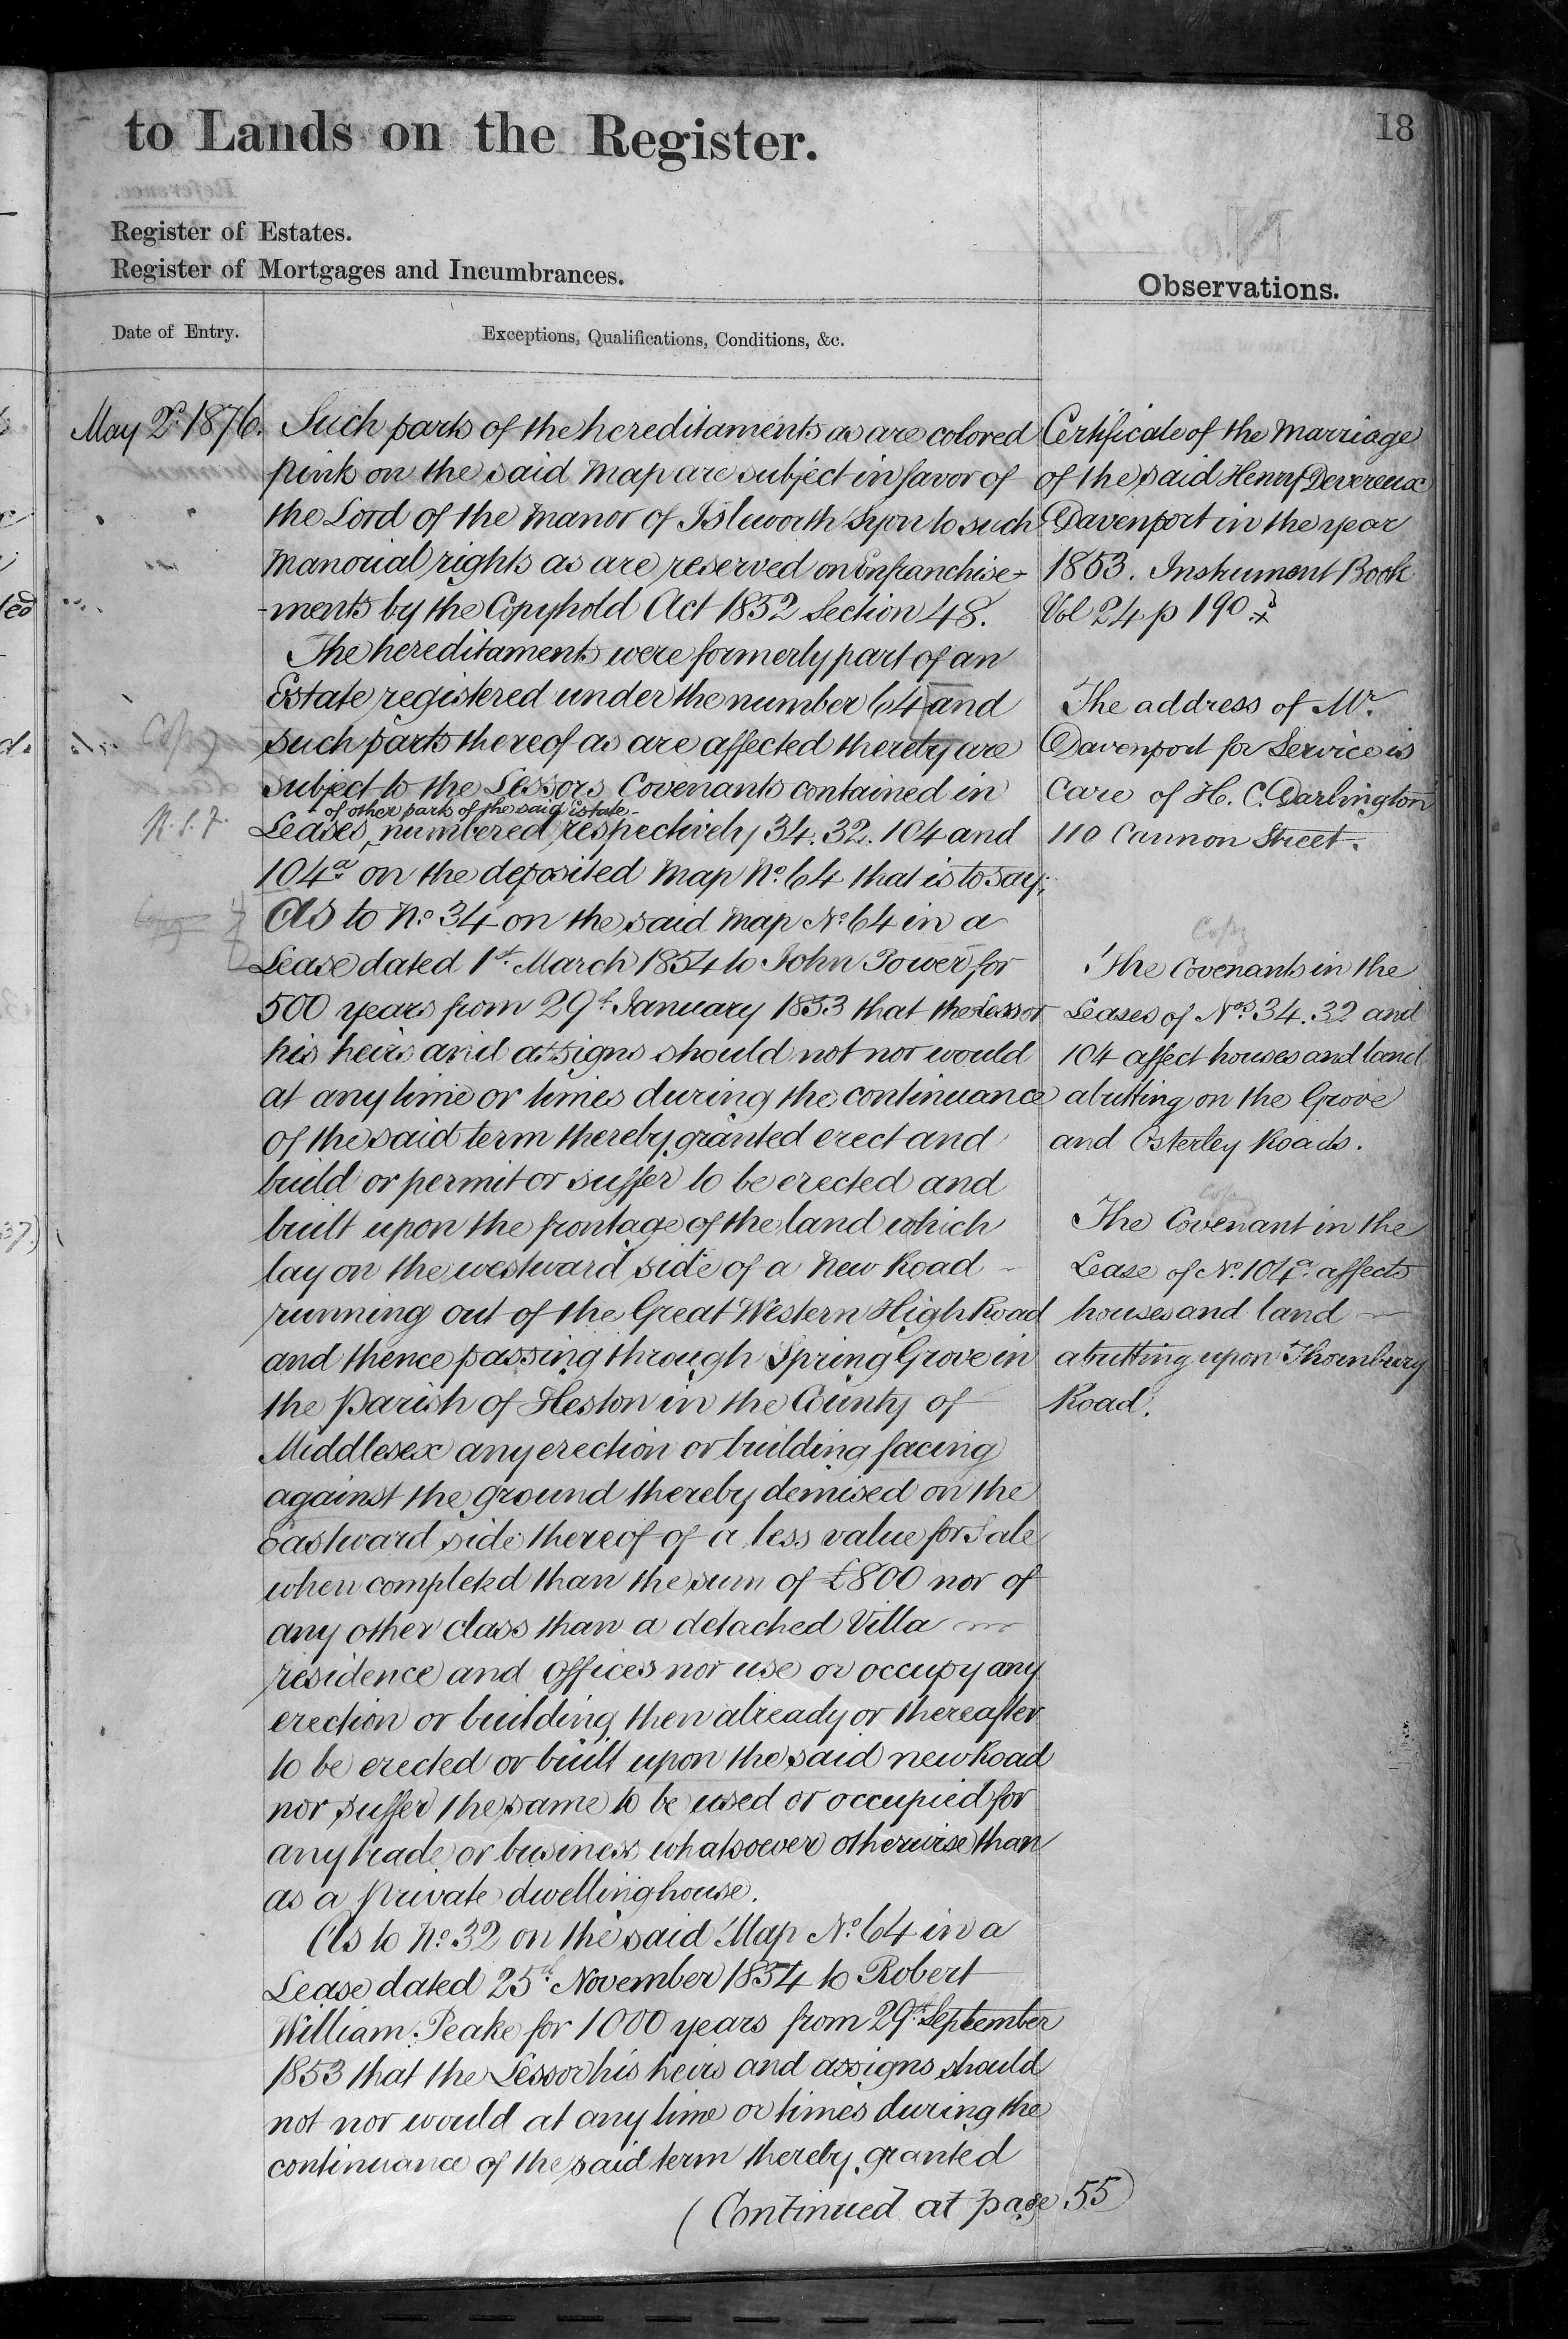 to Lands on the Register.
18
Register of Estates.
Register of Mortgages and Incumbrances.
Observations.
Date of Entry.
Exceptions, Qualifications, Conditions, &c.
May 2d. 1876.
Such parts of the hereditaments as are colored
pink on the said Map are subject in favor of
the Lord of the Manor of Isleworth Syon to such
Manorial rights as are reserved on Enfranchise-
-ments by the Copyhold Act 1852 Section 48.
The hereditaments were formerly part of an
Estate registered under the number 64 and
such parts thereof as are affected thereby are
subject to the Lessors Covenants contained in
of other parts of the said Estate
Leases numbered respectively 34. 32. 104 and
104a. on the deposited Map No. 64 that is to say;
As to No. 34 on the said Map No. 64 in a
Lease dated 1st. March 1854 to John Power for
500 years from 29th January 1853 that the Lessor
his heirs and assigns should not nor would
at any time or times during the continuance
of the said term thereby granted erect and
build or permit or suffer to be erected and
built upon the frontage of the land which
lay on the westward side of a New Road
running out of the Great Western High Road
and thence passing through Spring Grove in
the Parish of Heston in the County of
Middlesex any erection or building facing
against the ground thereby demised on the
Eastward side thereof of a less value for Sale
when completed than the sum of £800 nor of
any other class than a detached Villa
residence and Offices nor use or occupy any
erection or building then already or thereafter
to be erected or built upon the said new Road
nor suffer the same to be used or occupied for
any trade or business whatsoever otherwise than
as a private dwellinghouse.
As to No. 32 on the said Map No. 64 in a
Lease dated 25th. November 1854 to Robert
William Peake for 1000 years from 29th. September
1853 that the Lessor his heirs and assigns should
not nor would at any time or times during the
continuance of the said term thereby granted
(Continued at page 55)
Certificate of the Marriage
of the said Henry Devereux
Davenport in the year
1853. Instrument Book
Vol 24 p 190
The address of Mr.
Davenport for Service is
Care of H. C. Darlington
110 Cannon Street.
Copy
The Covenants in the
Leases of Nos. 34. 32 and
104 affect houses and land
abutting on the Grove
and Osterley Roads.
Copy
The Covenant in the
Lease of No. 104a. affects
houses and land
abutting upon Thornbury
Road.